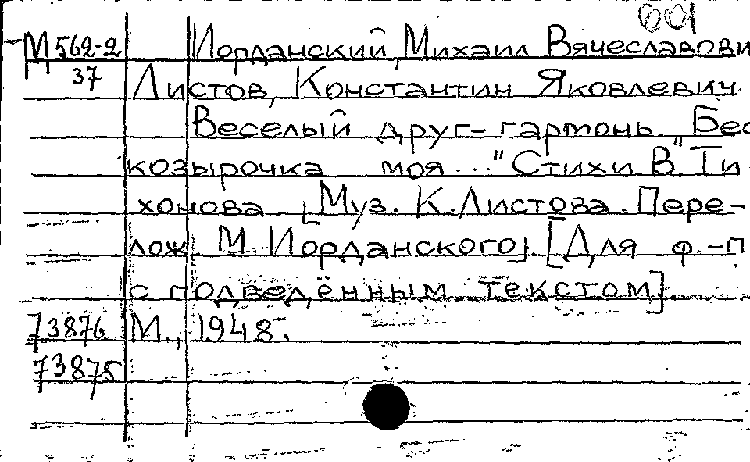 601
М 562-2 Иорданский, Михаил Вячеславови
37 Листов, Константин Яковлевич.
Веселый друг-гармонь. "Бес
козырочка моя..." Стихи В. Ти
хонова. [Муз. К. Листова. Пере-
лож. М. Иорданского]. [Для ф.-п
с подведённым текстом].
73876 М., 1948.
73875